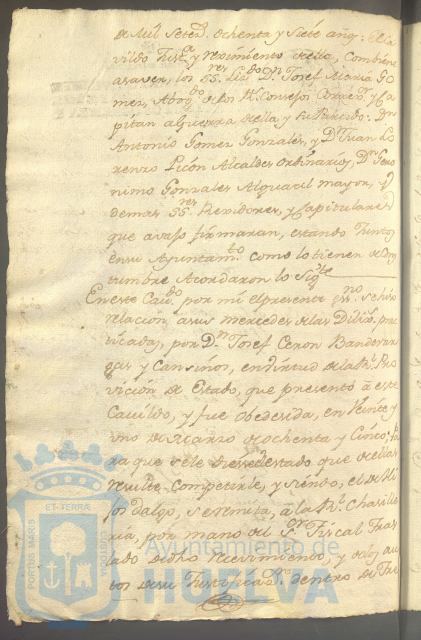 de Mil Seted. ochenta y Siete años: El Ca
vildo Just.a y reximiento de ella, combiene
a saver, los SS.res Lic.do D.n Josef Maria Go
mez, Abog.do de los R.s Consejos Correx.or y Ca
pitan a Guerra de ella y su Partido: D.n
Antonio Gomez Gonzales, y D.n Juan Lo
renzo Picon Alcaldes ordinarios, D.n Gero
nimo Gonzales Alguacil mayor, y
demas SS.res Rexidores, y Capitulares
que avajo firmaran, estando Juntos
en su Ayuntam.to como lo tienen de Cos
tumbre Acordaron lo Sig.te
En este Cavi.do por mi el presente ess.no se hizo
relación a sus mercedes de las Dilixs. prac
ticadas, por D.n Josef Ceron Banderar
gas y Cansinos, en virtud de la R.l Pro
vicion de Estado, que presentó a este
Cavildo, y fue obedesida, en Veinte y
uno de Marzo de ochenta y Cinco: pa
ra que se le diese el estado que de ellas
resulte Competirle, y siendo, el de Hi
jos dalgo, se remita, a la R.l Chansille
ria, por mano del S.or Fiscal Tras
lado de dho Recivimiento, y de los au
tos de su Justicia D.a dentro de Tre
Ayuntamiento de
HUELVA
PORTUS MARIS
ET TERRÆ
CUSTODIA